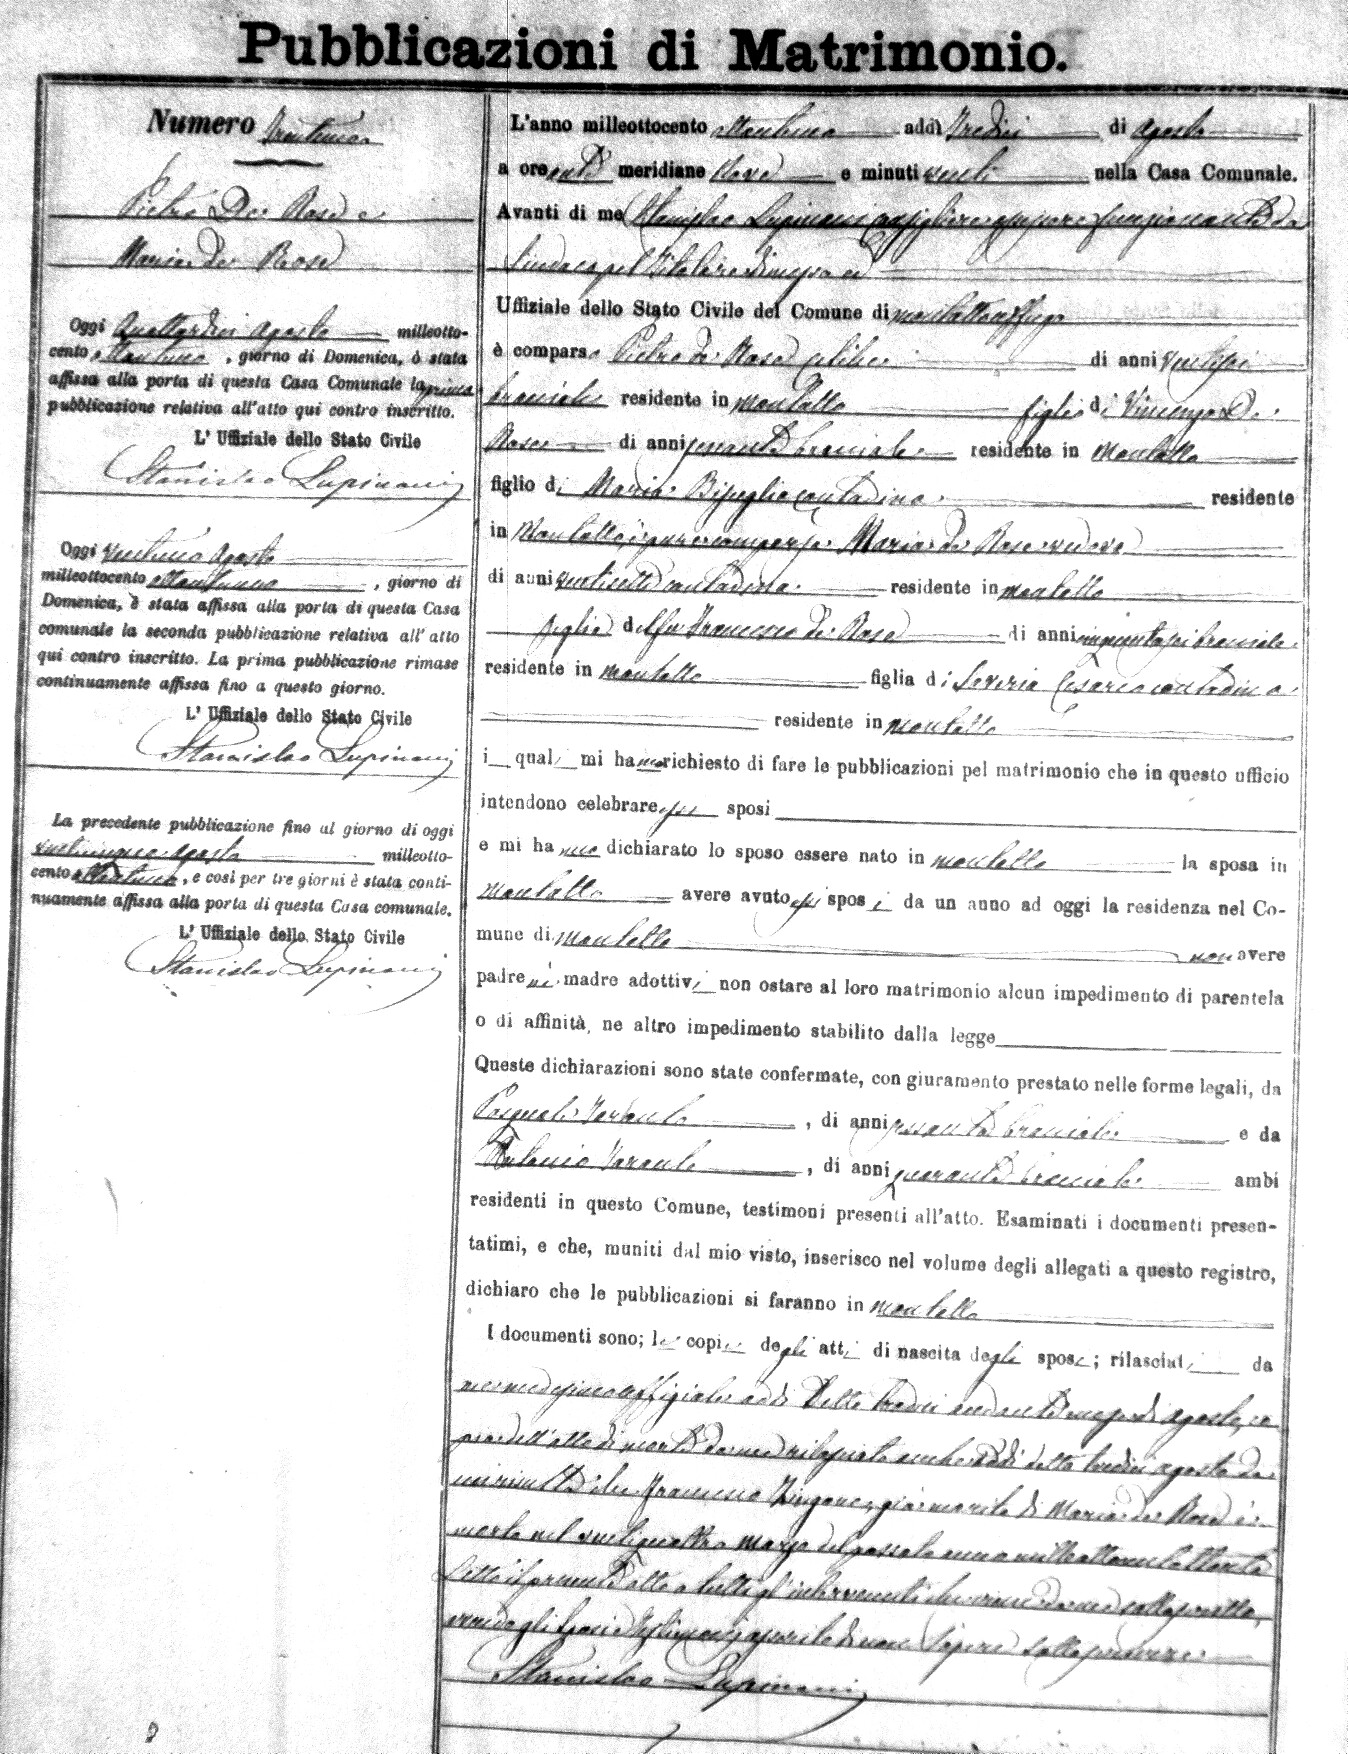 Pubblicazioni di Matrimonio.
Numero Trentuno
Pietro De Rose e
Maria de Rose
Oggi Quattordici Agosto milleotto-
cento ottantuno, giorno di Domenica, è stata
affissa alla porta di questa Casa Comunale la prima
pubblicazione relativa all'atto qui contro inscritto.
L' Uffiziale dello Stato Civile
Stanislao Lupinacci
Oggi ventuno Agosto
milleottocento ottantuno, giorno di
Domenica, è stata affissa alla porta di questa Casa
comunale la seconda pubblicazione relativa all' atto
qui contro inscritto. La prima pubblicazione rimase
continuamente affissa fino a questo giorno.
L' Uffiziale dello Stato Civile
Stanislao Lupinacci
La precedente pubblicazione fino al giorno di oggi
venticinque Agosto milleotto-
cento ottantuno, e così per tre giorni è stata conti-
nuamente affissa alla porta di questa Casa comunale.
L' Uffiziale dello Stato Civile
Stanislao Lupinacci
L'anno milleottocento ottantuno addì tredici di Agosto
a ore anti meridiane nove e minuti venti nella Casa Comunale.
Avanti di me Stanislao Lupinacci Consigliere funzionante da
Sindaco pel titolare
Uffiziale dello Stato Civile del Comune di Montaltouffugo
è comparso Pietro de Rose celibe di anni ventisei
bracciale residente in Montalto figlio di Vincenzo De
Rose di anni sessanta bracciale residente in Montalto
figlio di Maria contadina residente
in Montalto, è pure comparsa Maria de Rose vedova
di anni ventisette contadina residente in Montalto
figlia del fu Francesco de Rose di anni cinquantasei bracciale
residente in Montalto figlia di Saveria Cesario contadina
residente in Montalto
i quali mi hanno richiesto di fare le pubblicazioni pel matrimonio che in questo ufficio
intendono celebrare essi sposi
e mi hanno dichiarato lo sposo essere nato in Montalto la sposa in
Montalto avere avuto essi sposi da un anno ad oggi la residenza nel Co-
mune di Montalto non avere
padre nè madre adottivi non ostare al loro matrimonio alcun impedimento di parentela
o di affinità, ne altro impedimento stabilito dalla legge
Queste dichiarazioni sono state confermate, con giuramento prestato nelle forme legali, da
Pasquale, di anni sessanta bracciale e da
Antonio, di anni quaranta bracciale ambi
residenti in questo Comune, testimoni presenti all'atto. Esaminati i documenti presen-
tatimi, e che, muniti dal mio visto, inserisco nel volume degli allegati a questo registro,
dichiaro che le pubblicazioni si faranno in Montalto
I documenti sono; le copie degli atti di nascita degli sposi; rilasciati da
me medesimo uffiziale addì detto tredici andante mese di Agosto, co
pia dell'atto di morte da me rilasciata anche addì detto tredici agosto da
cui risulta che Francesco Zingone, già marito di Maria de Rose è
morto nel ventiquattro marzo del passato anno milleottocentottanta
Letto il presente atto a tutti gl'intervenuti viene da me sottoscritto,
avendo gli sposi e testimoni asserito di non sapere sottoscrivere
Stanislao Lupinacci